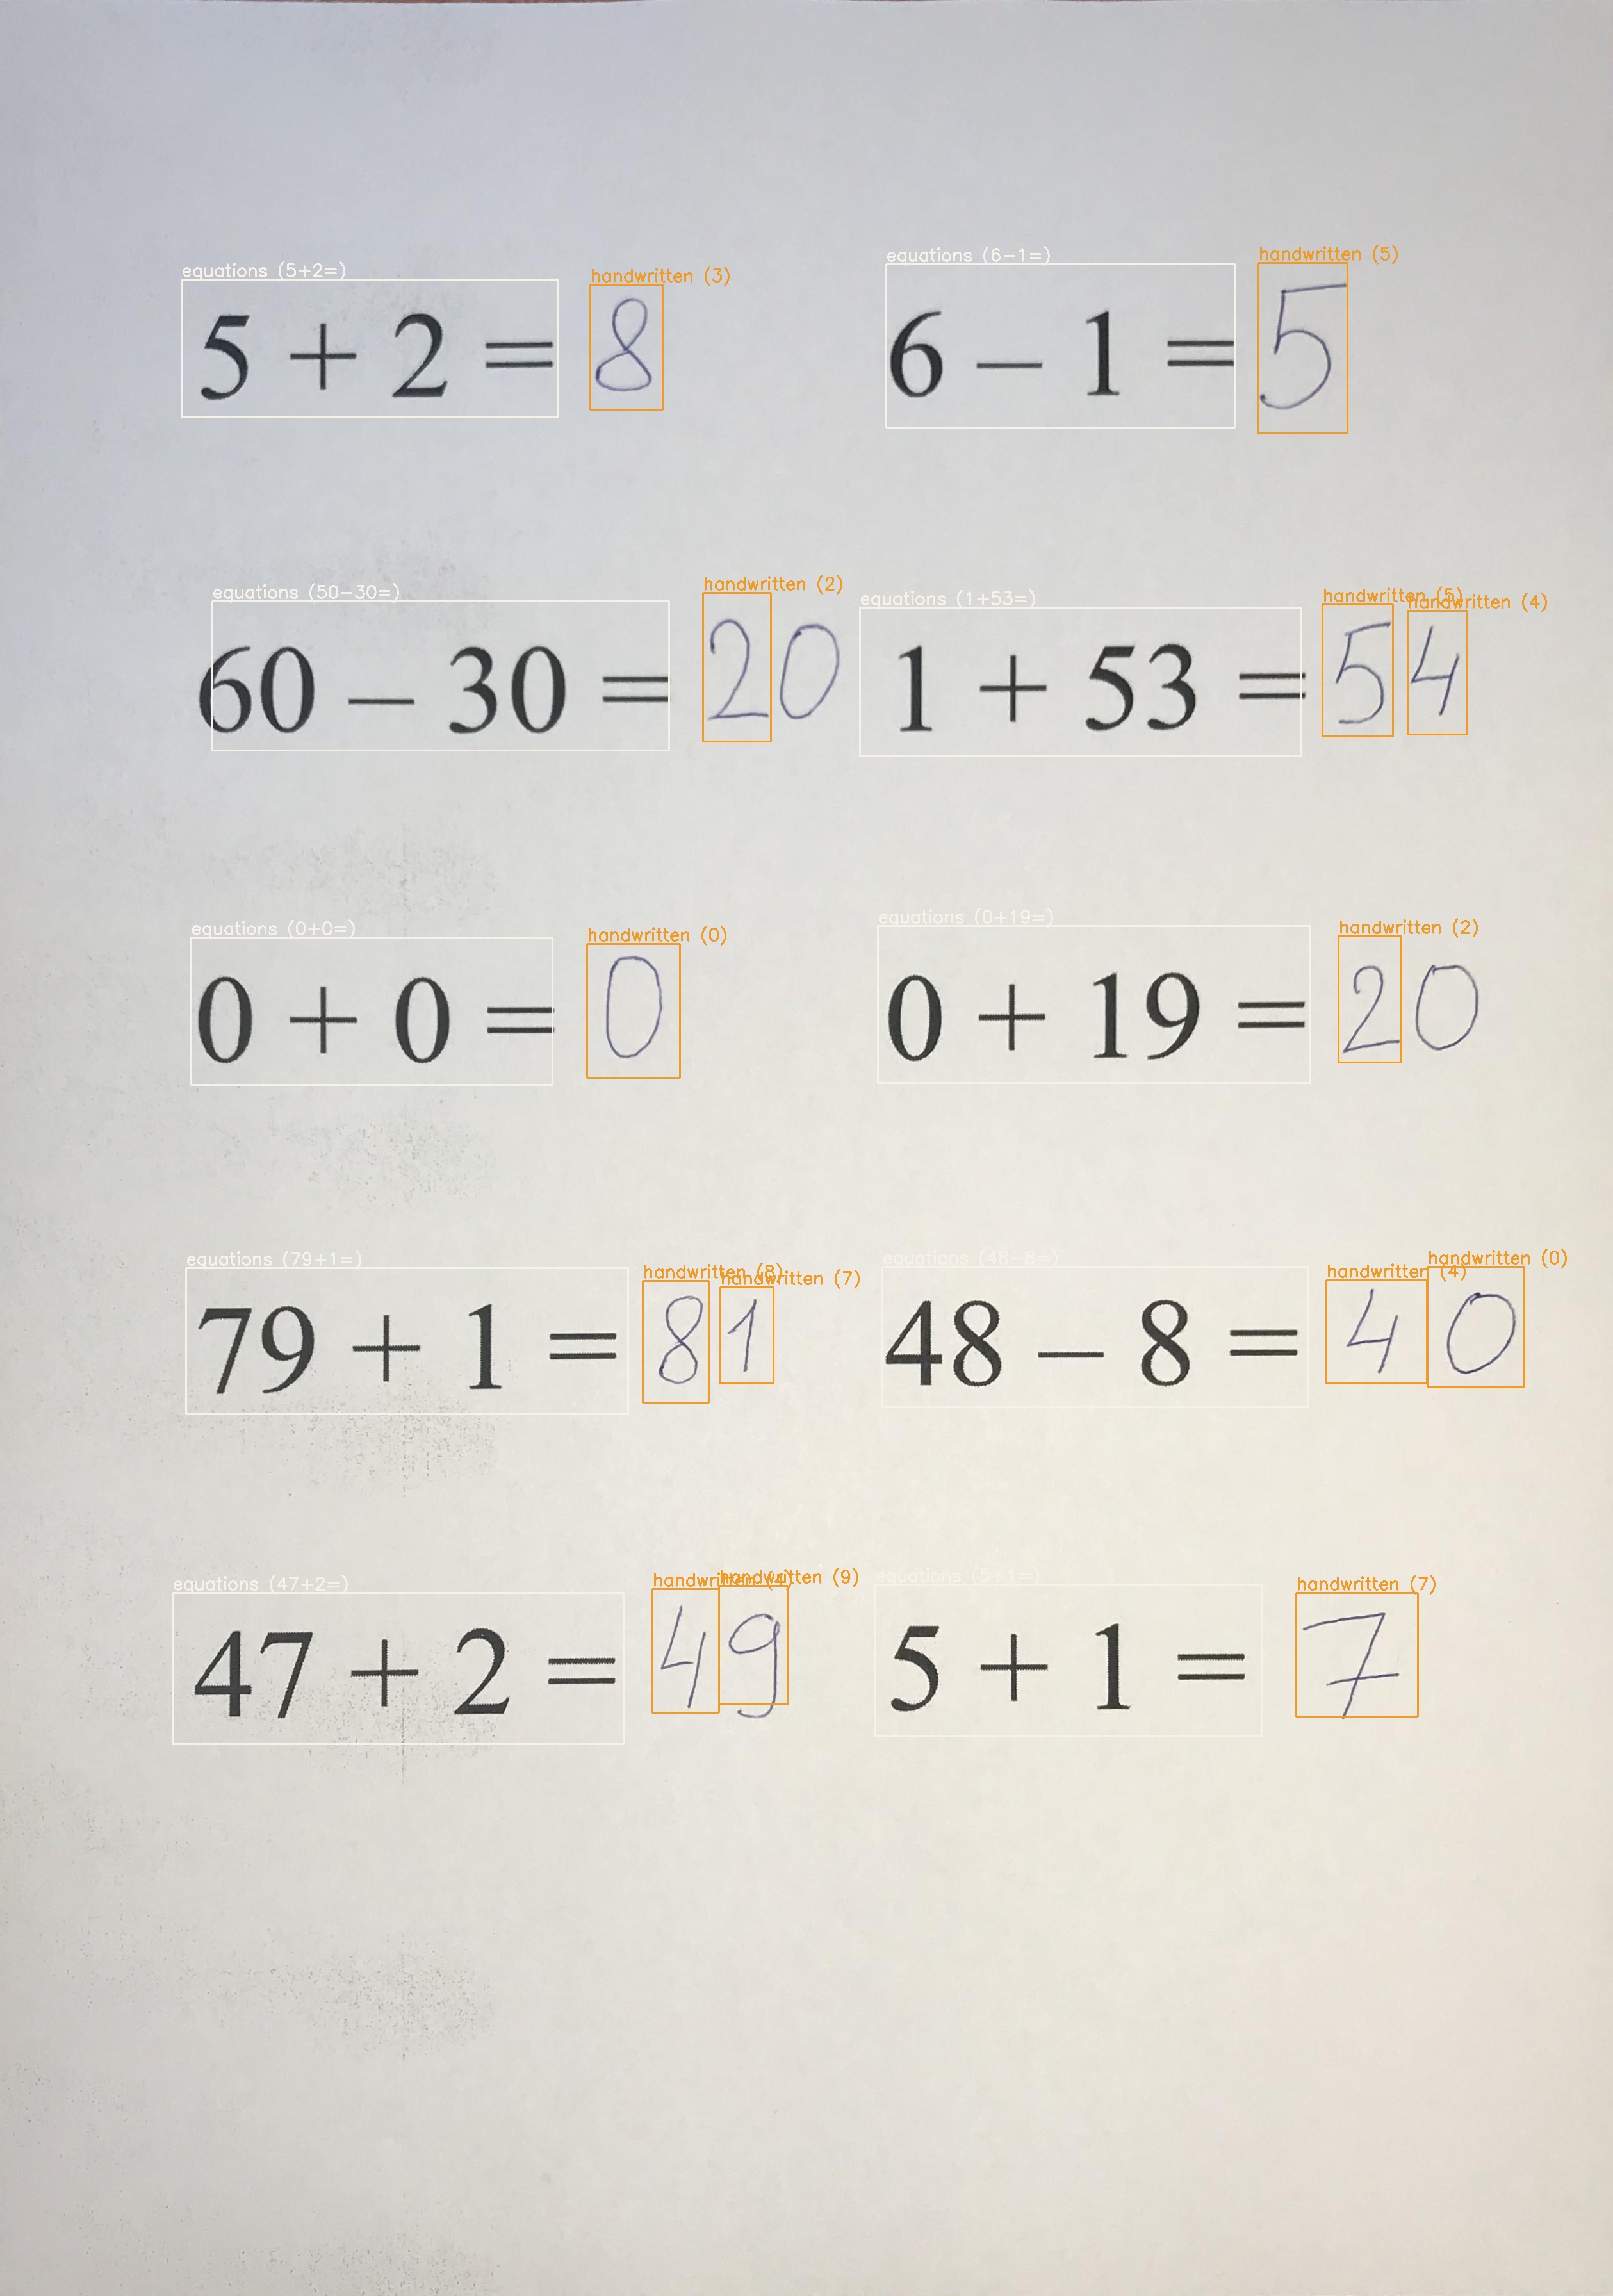 equations (5+2=) handwritten (3) equations (6-1=) handwritten (5)
5 + 2 = 8 6 – 1 = 5
equations (50-30=) handwritten (2) equations (1+53=) handwritten (5) handwritten (4)
60 – 30 = 20 1 + 53 = 54
equations (0+0=) handwritten (0) equations (0+19=) handwritten (2)
0 + 0 = 0 0 + 19 = 20
equations (79+1=) handwritten (8) handwritten (7) equations (48-8=) handwritten (4) handwritten (0)
79 + 1 = 81 48 – 8 = 40
equations (47+2=) handwritten (4) handwritten (9) equations (5+1=) handwritten (7)
47 + 2 = 49 5 + 1 = 7